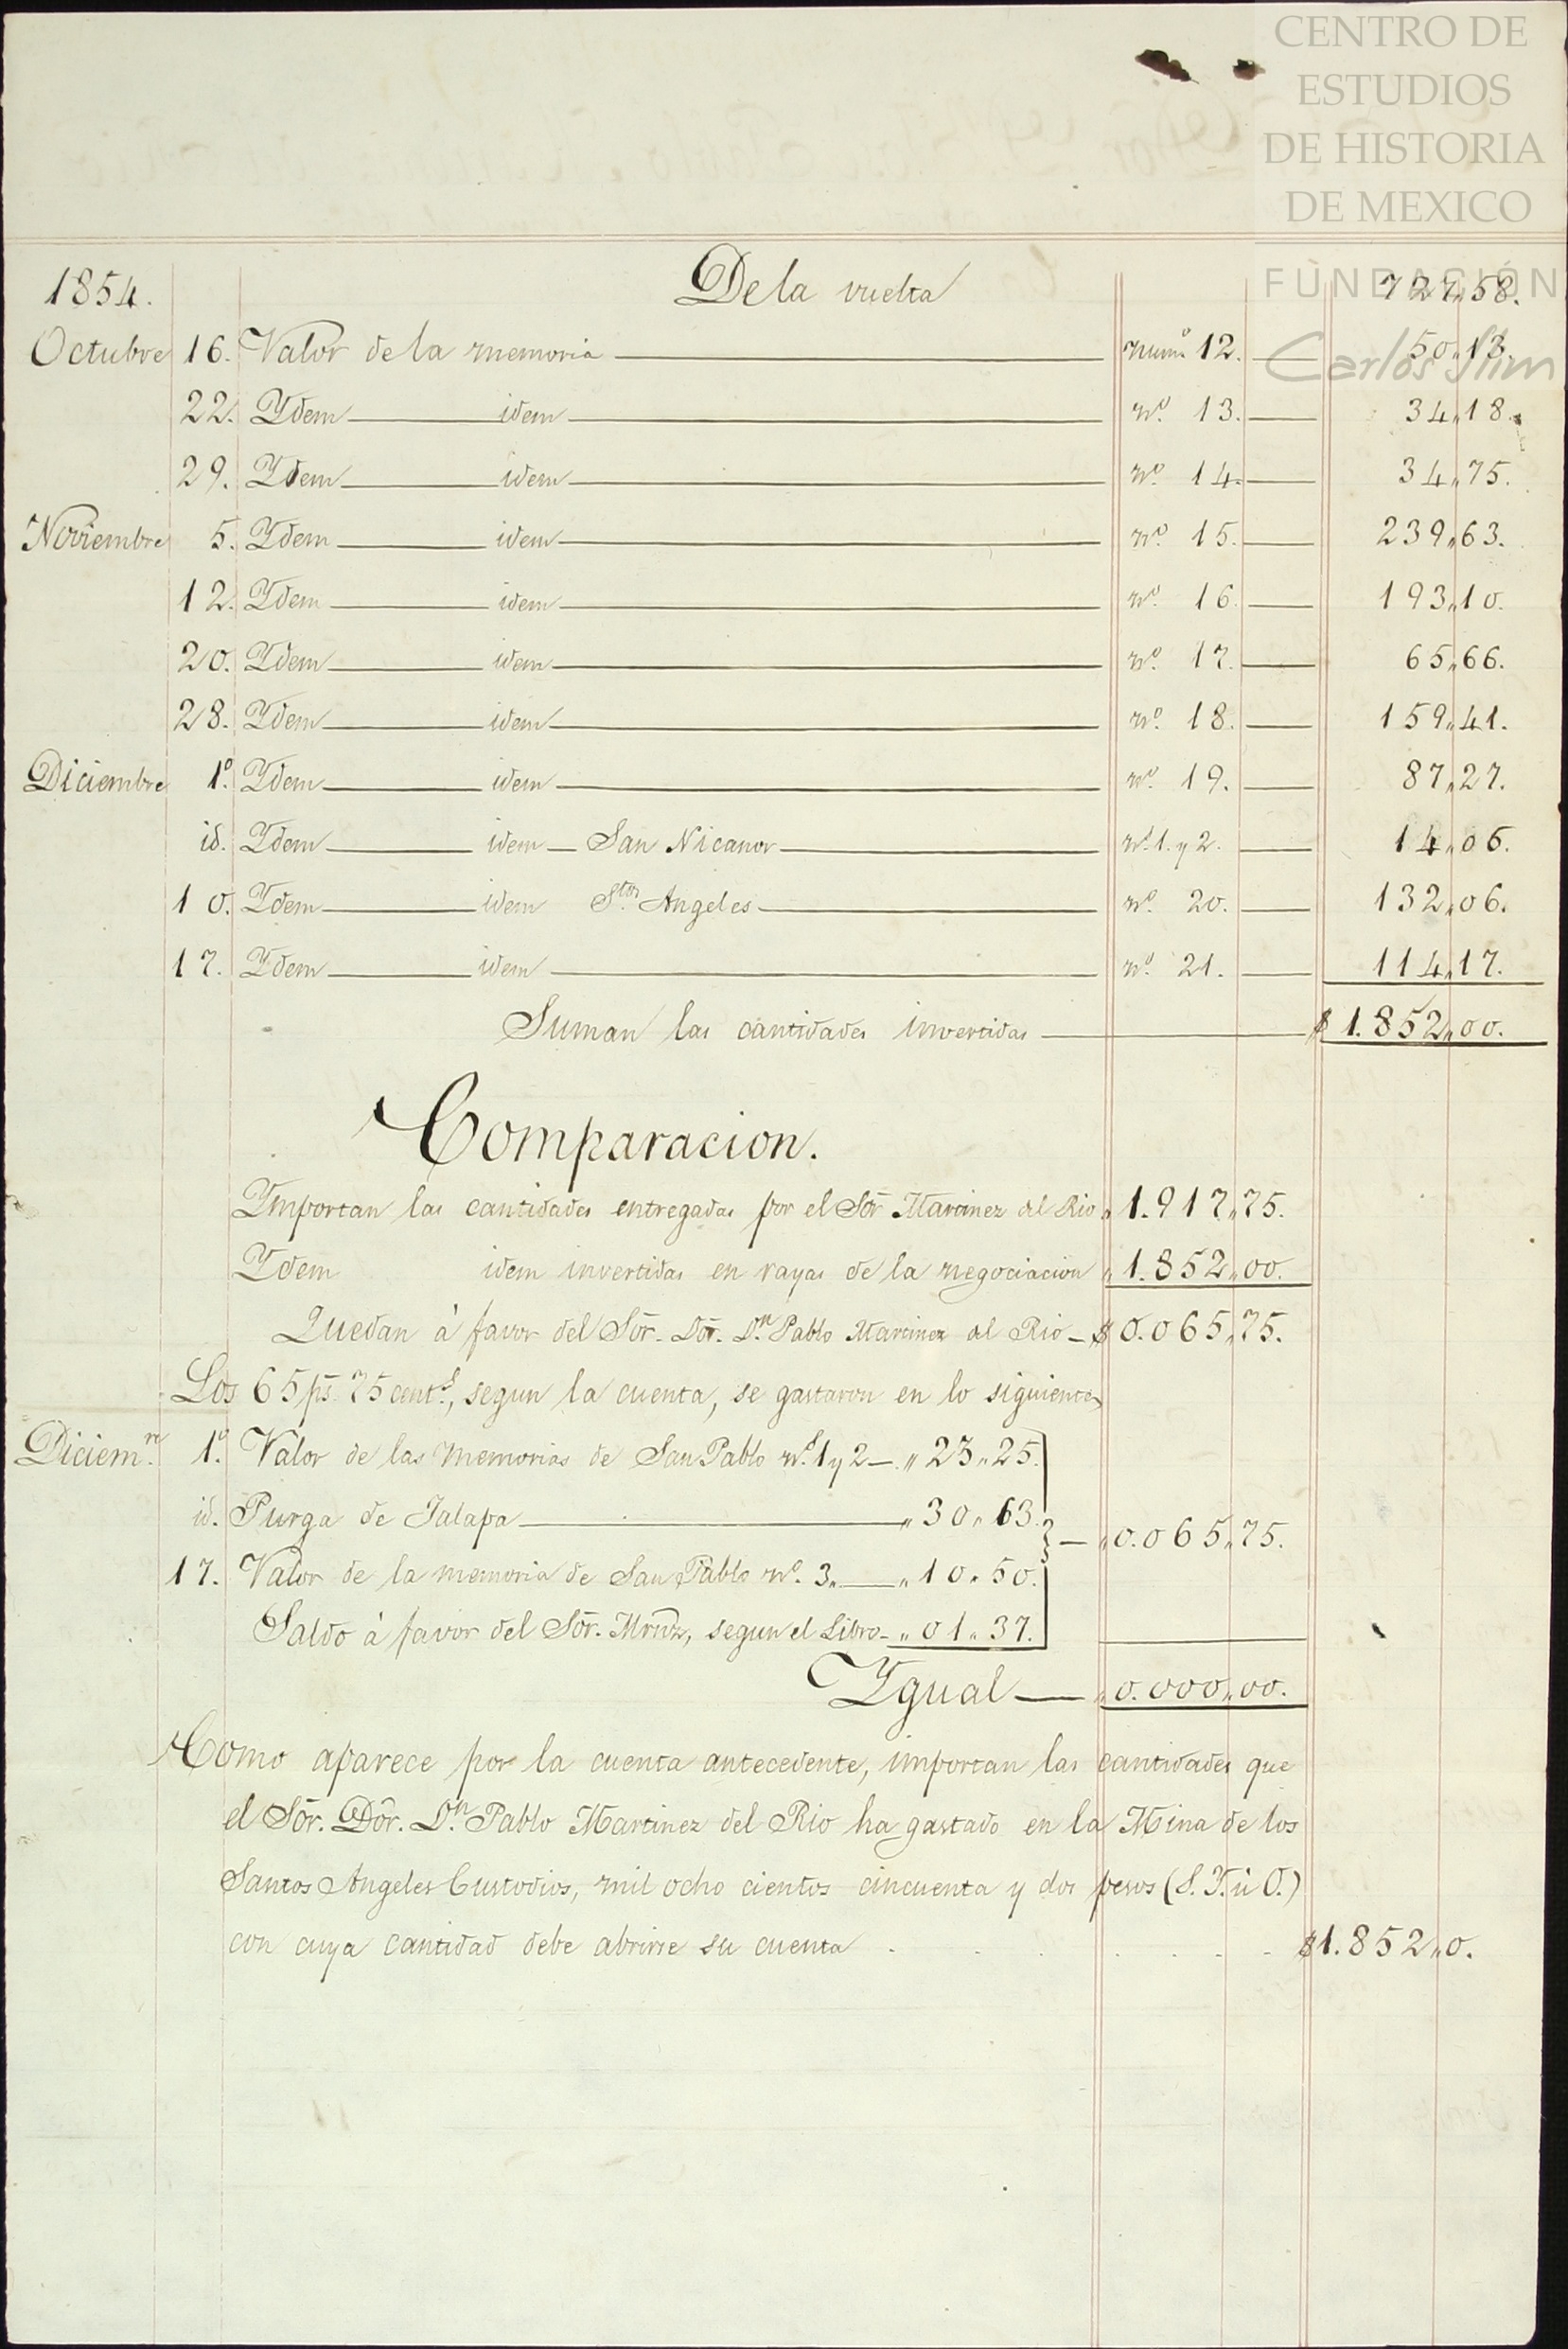 CENTRO DE
ESTUDIOS
DE HISTORIA
DE MEXICO
FUNDACIÓN
Carlos Slim
1854. De la vuelta 727,,58.
Octubre 16. Valor de la memoria numº 12. 50,,13.
22. Ydem idem nº 13. 34,,18.
29. Ydem idem nº 14. 34,,75.
Noviembre 5. Ydem idem nº 15. 239,,63.
12. Ydem idem nº 16. 193,,10.
20. Ydem idem nº 17. 65,,66.
28. Ydem idem nº 18. 159,,41.
Diciembre 1º. Ydem idem nº 19. 87,,27.
id. Ydem idem San Nicanor nº 1. y 2. 14,,06.
10. Ydem idem Stos Angeles nº 20. 132,,06.
17. Ydem idem nº 21. 114,,17.
Suman las cantidades invertidas $ 1.852,,00.
Comparacion.
Ymportan las cantidades entregadas por el Sōr Martinez del Rio ,, 1.917,,75.
Ydem idem invertidas en rayas de la negociacion ,, 1.852,,00.
Quedan á favor del Sōr. Dōr. Dn Pablo Martinez del Rio $ 0.065,,75.
Los 65 ps. 75 cents., segun la cuenta, se gastaron en lo siguiente
Diciemre. 1º. Valor de las Memorias de San Pablo ns. 1 y 2 ,, 23,,25.
id. Purga de Jalapa ,, 30,,63. ,, 0.065,,75.
17. Valor de la memoria de San Pablo nº. 3,, ,, 10,,50.
Saldo á favor del Sōr. Mrnz, segun el Libro ,, 01,,37.
Ygual ,, 0.000,,00.
Como aparece por la cuenta antecedente, importan las cantidades que
el Sōr. Dōr. Dn Pablo Martinez del Rio ha gastado en la Mina de los
Santos Angeles Custodios, mil ocho cientos cincuenta y dos pesos (S. Y. ú O.)
con cuya cantidad debe abrirse su cuenta . . . . . . . $1.852,,0.